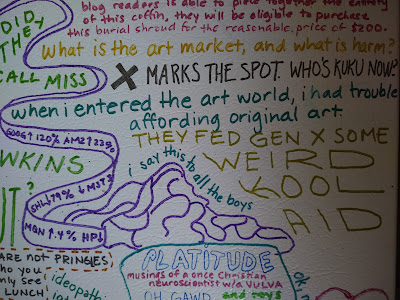 blog readers is able to piece together the entirety
of this coffin, they will be eligible to purchase
this burial shroud for the reasonable price of $200.
DID
THEY
CALL MISS
WKINS
IT?
what is the art market, and what is harm?
X MARKS THE SPOT. WHO'S KUKU NOW?
when i entered the art world, i had trouble
affording original art.
THEY FED GEN X SOME
WEIRD
KOOL
AID
GOOG↑120% AMZ↑23%
SHL↓79% ↓MST3
MGN↑.4% HP↓
i say this to all the boys
PLATITUDE
musings of a once Christian
neuroscientist w/a VULVA
OH GAWD and toys
ARE NOT PRINGLES
who you
only see
LUNCH!
ideopath